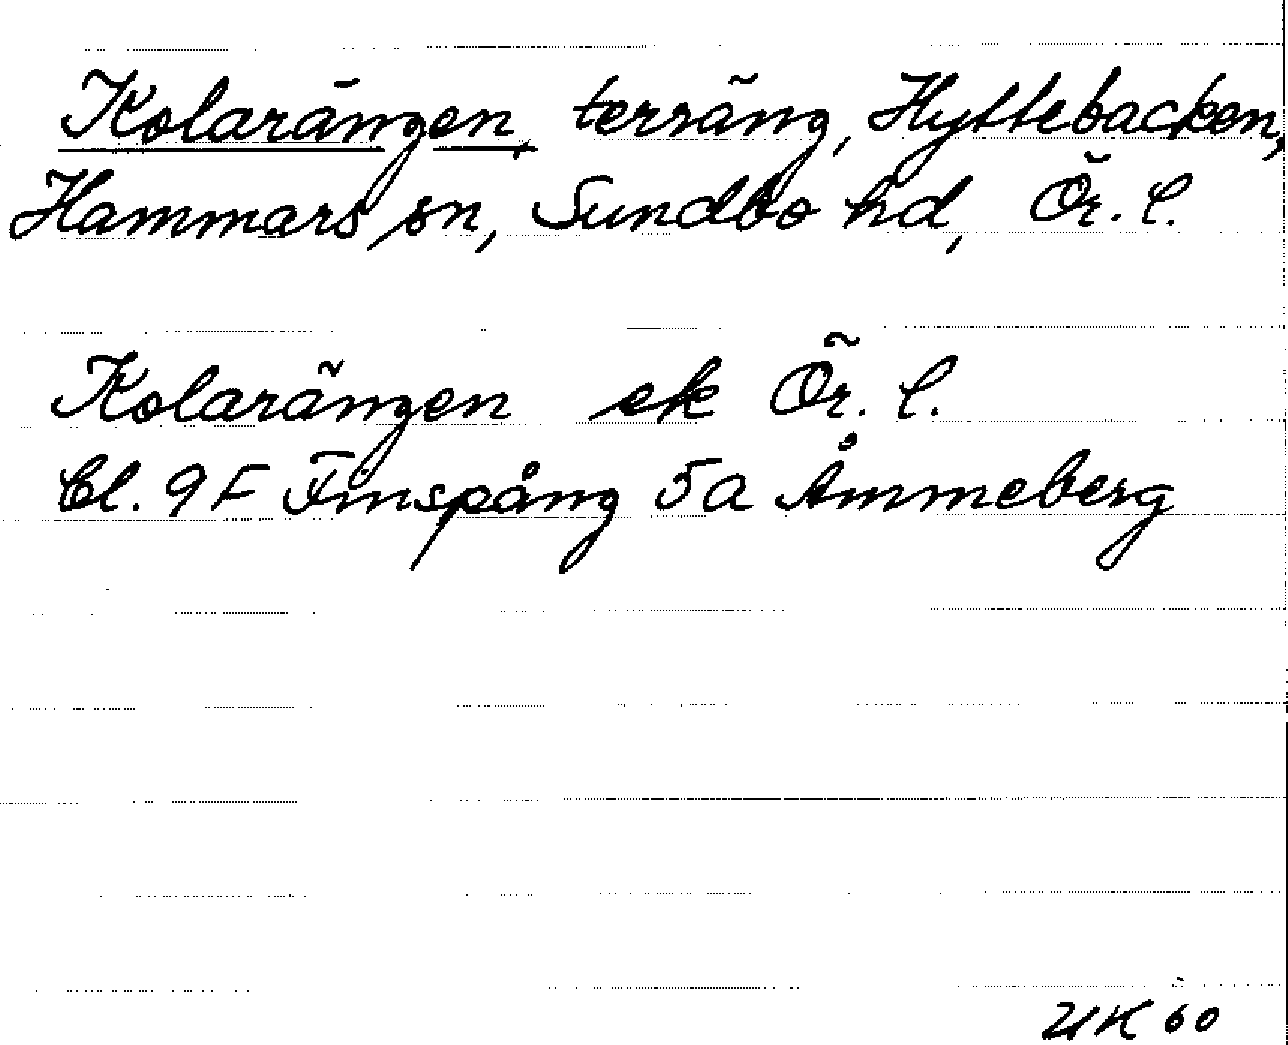 Kolarängen, terräng, Hyttebacken,
Hammars sn, Sundbo hd, Ör. l.
Kolarängen ek Ör. l.
Bl. 9F Finspång 5a Åmmeberg
UK 60